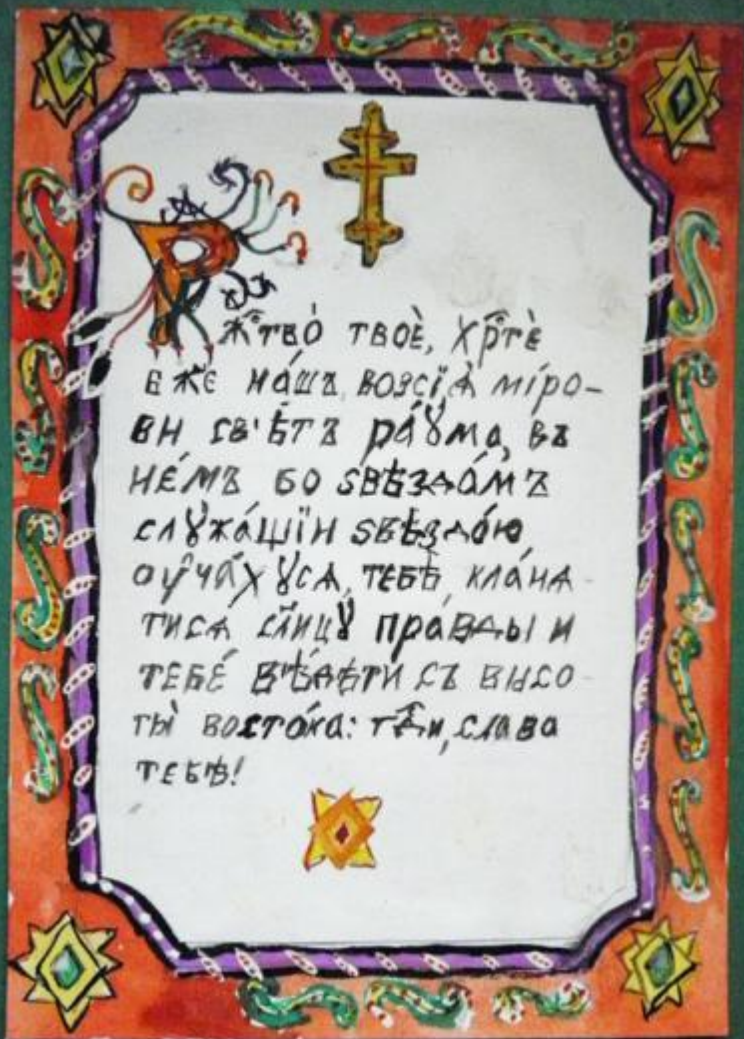 Рж҇тво̀ твоѐ, хр҇тѐ
бж҃е на́шъ, возсїѧ̀ мі́ро-
ви свѣ́тъ ра́ꙋма, въ
не́мъ бо ѕвѣзда́мъ
слꙋжа́щїи ѕвѣздо́ю
оу҆ча́хꙋсѧ, тебѣ̀ кла́нѧ-
тисѧ сл҃нцꙋ пра́вды и
тебе́ вѣ́дѣти съ высо
ты̀ восто́ка: гдⷭ҇и, слава
тебѣ̀!